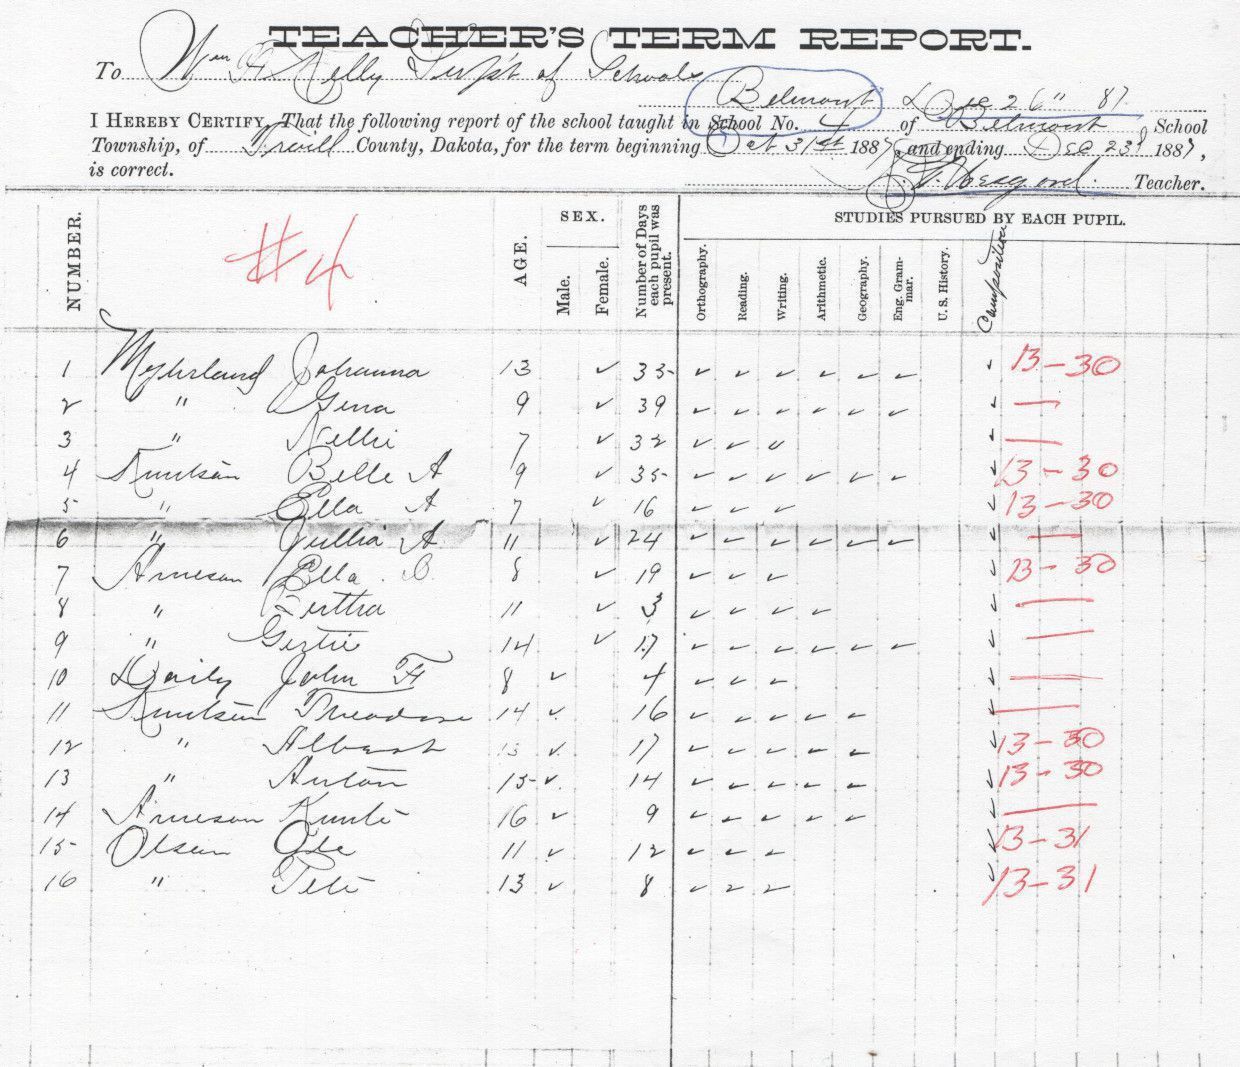 TEACHER'S TERM REPORT.
To Wm H Kelly Sup't of Schools
Belmont Dec 26" 87
I HEREBY CERTIFY, That the following report of the school taught in School No. 4 of Belmont School
Township, of Traill County, Dakota, for the term beginning Oct 31st 1887, and ending Dec 23d 1887,
is correct. Teacher.
NUMBER. #4 AGE. SEX. Number of Days each pupil was present. STUDIES PURSUED BY EACH PUPIL.
Male. Female. Orthography. Reading. Writing. Arithmetic. Geography. Eng. Grammar. U.S. History. Composition
1 Myhrland Johanna 13 ✓ 35 ✓ ✓ ✓ ✓ ✓ ✓ ✓ 13-30
2 " Gena 9 ✓ 39 ✓ ✓ ✓ ✓ ✓ ✓ ✓ —
3 " Nellie 7 ✓ 32 ✓ ✓ ✓ ✓ —
4 Knutson Belle A 9 ✓ 35 ✓ ✓ ✓ ✓ ✓ ✓ ✓ 13-30
5 " Ella A 7 ✓ 16 ✓ ✓ ✓ ✓ 13-30
6 " Jullia A 11 ✓ 24 ✓ ✓ ✓ ✓ ✓ ✓ ✓ —
7 Arneson Ella O. 8 ✓ 19 ✓ ✓ ✓ ✓ 13-30
8 " Bertha 11 ✓ 3 ✓ ✓ ✓ ✓ ✓ —
9 " Gertie 14 ✓ 17 ✓ ✓ ✓ ✓ ✓ ✓ ✓ —
10 Daily John H 8 ✓ 4 ✓ ✓ ✓ ✓ —
11 Knutson Theodore 14 ✓ 16 ✓ ✓ ✓ ✓ ✓ ✓ —
12 " Albert 13 ✓ 17 ✓ ✓ ✓ ✓ ✓ ✓ 13-30
13 " Anton 15 ✓ 14 ✓ ✓ ✓ ✓ ✓ ✓ 13-30
14 Arneson Knute 16 ✓ 9 ✓ ✓ ✓ ✓ ✓ ✓ —
15 Olsen Ole 11 ✓ 12 ✓ ✓ ✓ ✓ 13-31
16 " Pete 13 ✓ 8 ✓ ✓ ✓ ✓ 13-31